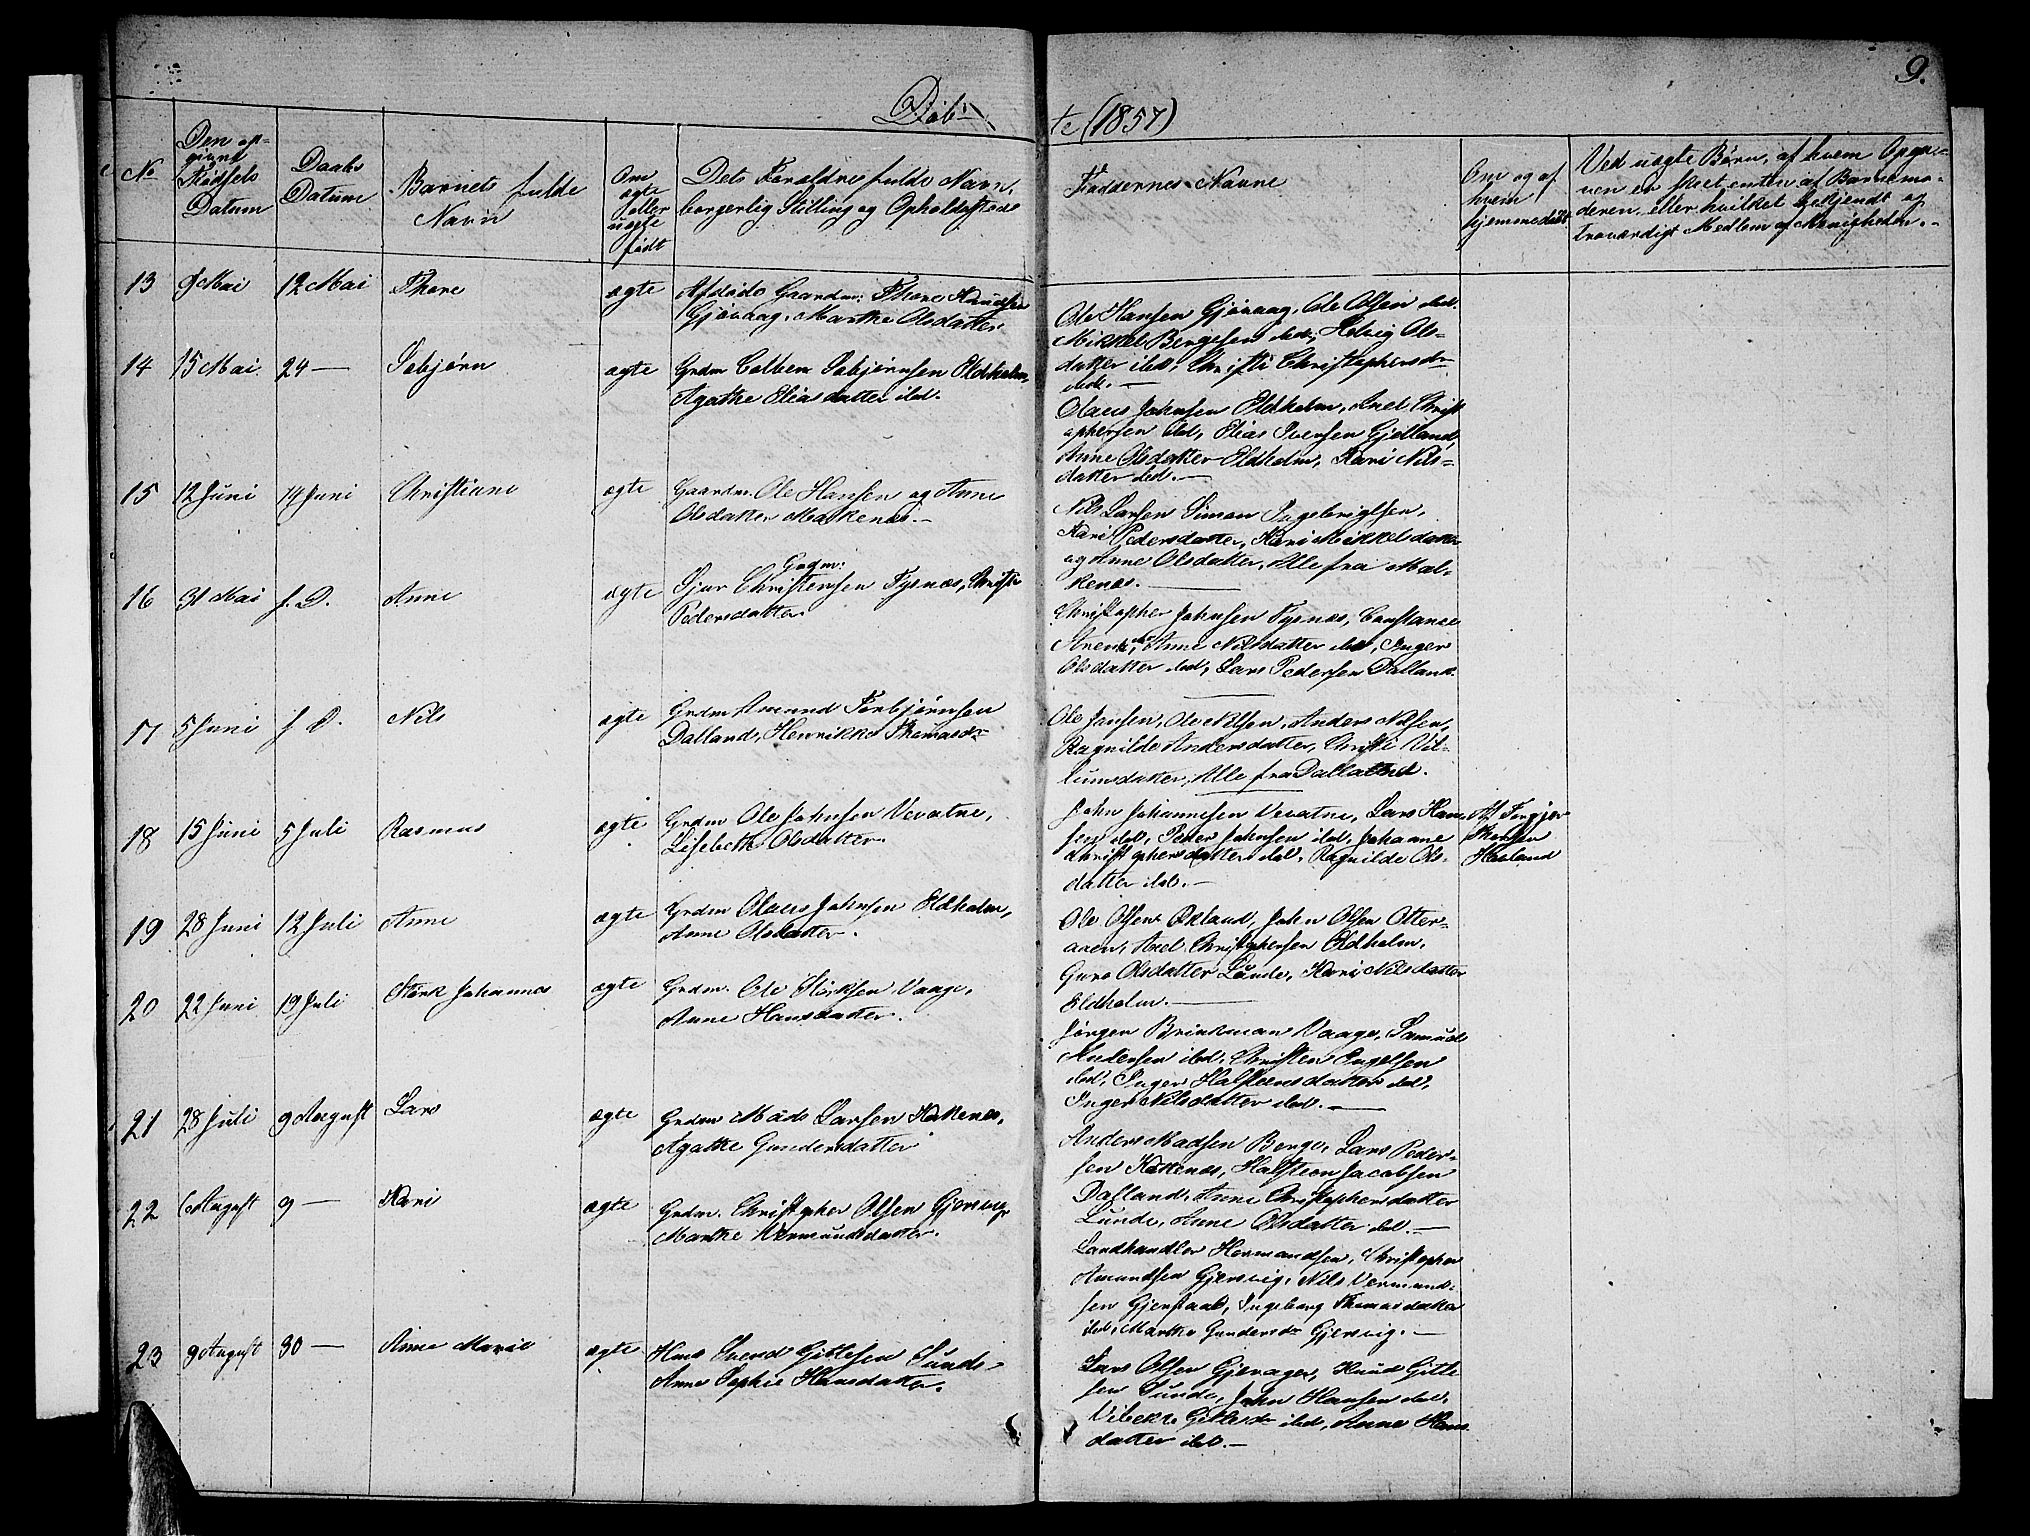 9.
Døbte (1857)
No
Den opgivne Fødsels Datum
Daabs Datum
Barnets fulde Navn
Om ægte eller uægte født
Dets Forældres fulde Navn, borgerlig Stilling og Opholdssted
Faddernes Navne
Om og af hvem hjemmedøbt
Ved uægte Børn, af hvem Opgaven er skeet, enten af Barnemoderen eller hvilket bekjendt og troværdigt Medlem af Menigheden.-
13 9 Mai 12 Mai Thore ægte
Afdøde Gaardm: Thore Knudsen
Gjøvaag, Marthe Olsdatter
Ole Hansen Gjøvaag, Ole Olsen ibd.
Mikkel Børgesen ibd, Helvig Ols-
datter ibd, Christi Christophersdr
ibd. -
14 15 Mai 24 — Sebjørn ægte
Grdm Colben Sebjørnsen Eldholm,
Agathe Eliasdatter ibd.
Olaus Johnsen Eldholm, Axel Christ
ophersen ibd, Elias Iversen Gjelland,
Anne Olsdatter Eldholm, Kari Nils-
datter ibd. -
15 12 Juni 14 Juni Christiane ægte
Gaardm. Ole Hansen og Anne
Olsdatter Malkenæs. -
Nils Larsen Simon Ingebrigtsen,
Kari Pedersdatter, Kari Mikkelsdatter
og Anne Olsdatter, Alle fra Mal-
kenæs. —
16 31 Mai s. D. Anne ægte
Grdm:
Sjur Christensen Tysnæs, Christi
Pedersdatter
Christopher Johnsen Tysnæs, Constance
Anne Nilsdatter ibd, Inger
Olsdatter ibd, Lars Pedersen Dalland.
17 5 Juni s. D. Nils ægte
Grdm Amund Torbjørnsen
Dalland, Henrikke Thomasdr
Ole Jansen, Ole Nilsen, Anders Nilsen,
Ragnilde Andersdatter, Christi Vil-
lumsdatter, Alle fra Dalland.
18 15 Juni 5 Juli Rasmus ægte
Grdm Ole Johnsen Vevatne,
Lisbeth Olsdatter.
John Johannesen Vevatne, Lars Han-
sen ibd, Peder Johnsen ibd, Johanne
Christophersdatter ibd. Ragnilde Ols-
datter ibd. -
Af Torgjer
Thorsen
Hesland
19 28 Juni 12 Juli Anne ægte
Grdm Olaus Johnsen Eldholm,
Anne Olsdatter.
Ole Olsen Øxland, John Olsen Otter-
aaen, Axel Christophersen Eldholm,
Guro Olsdatter Lunde, Kari Nilsdatter
Eldholm. —
20 22 Juni 19 Juli Størk Johannes ægte
Grdm. Ole Størksen Vaage,
Anne Hansdatter.
Jørgen Brinkman Vaage, Samuel
Andersen ibd, Christen Engelsen
ibd, Inger Halsteensdatter ibd,
Inger Nilsdatter ibd. —
21 28 Juli 9 August Lars ægte
Grdm Mads Larsen Kakenes,
Agathe Gundersdatter
Anders Madsen Berge, Lars Peder-
sen Kakenes, Halsteen Jacobsen
Dalland, Anne Christophersdatter
Lunde, Anne Olsdatter ibd. —
22 6 August 9 — Kari ægte
Grdm. Christopher Olsen Gjersvig,
Marthe Vermundsdatter.
Landhandler Hermandsen, Christopher
Amundsen Gjersvig, Nils Vermund-
sen Gjerstad, Ingeborg Thomasdatter
ibd, Marthe Gundersdr Gjersvig. —
23 9 August 30 — Anne Marie ægte
Hmd Svend Gittlesen Sunde
Anne Sophie Hansdatter.
Lars Olsen Gjerager, Knud Gitle
sen Sunde, John Hansen ibd.
Vibeke Gitlesdr ibd, Anna Hans
datter ibd. —